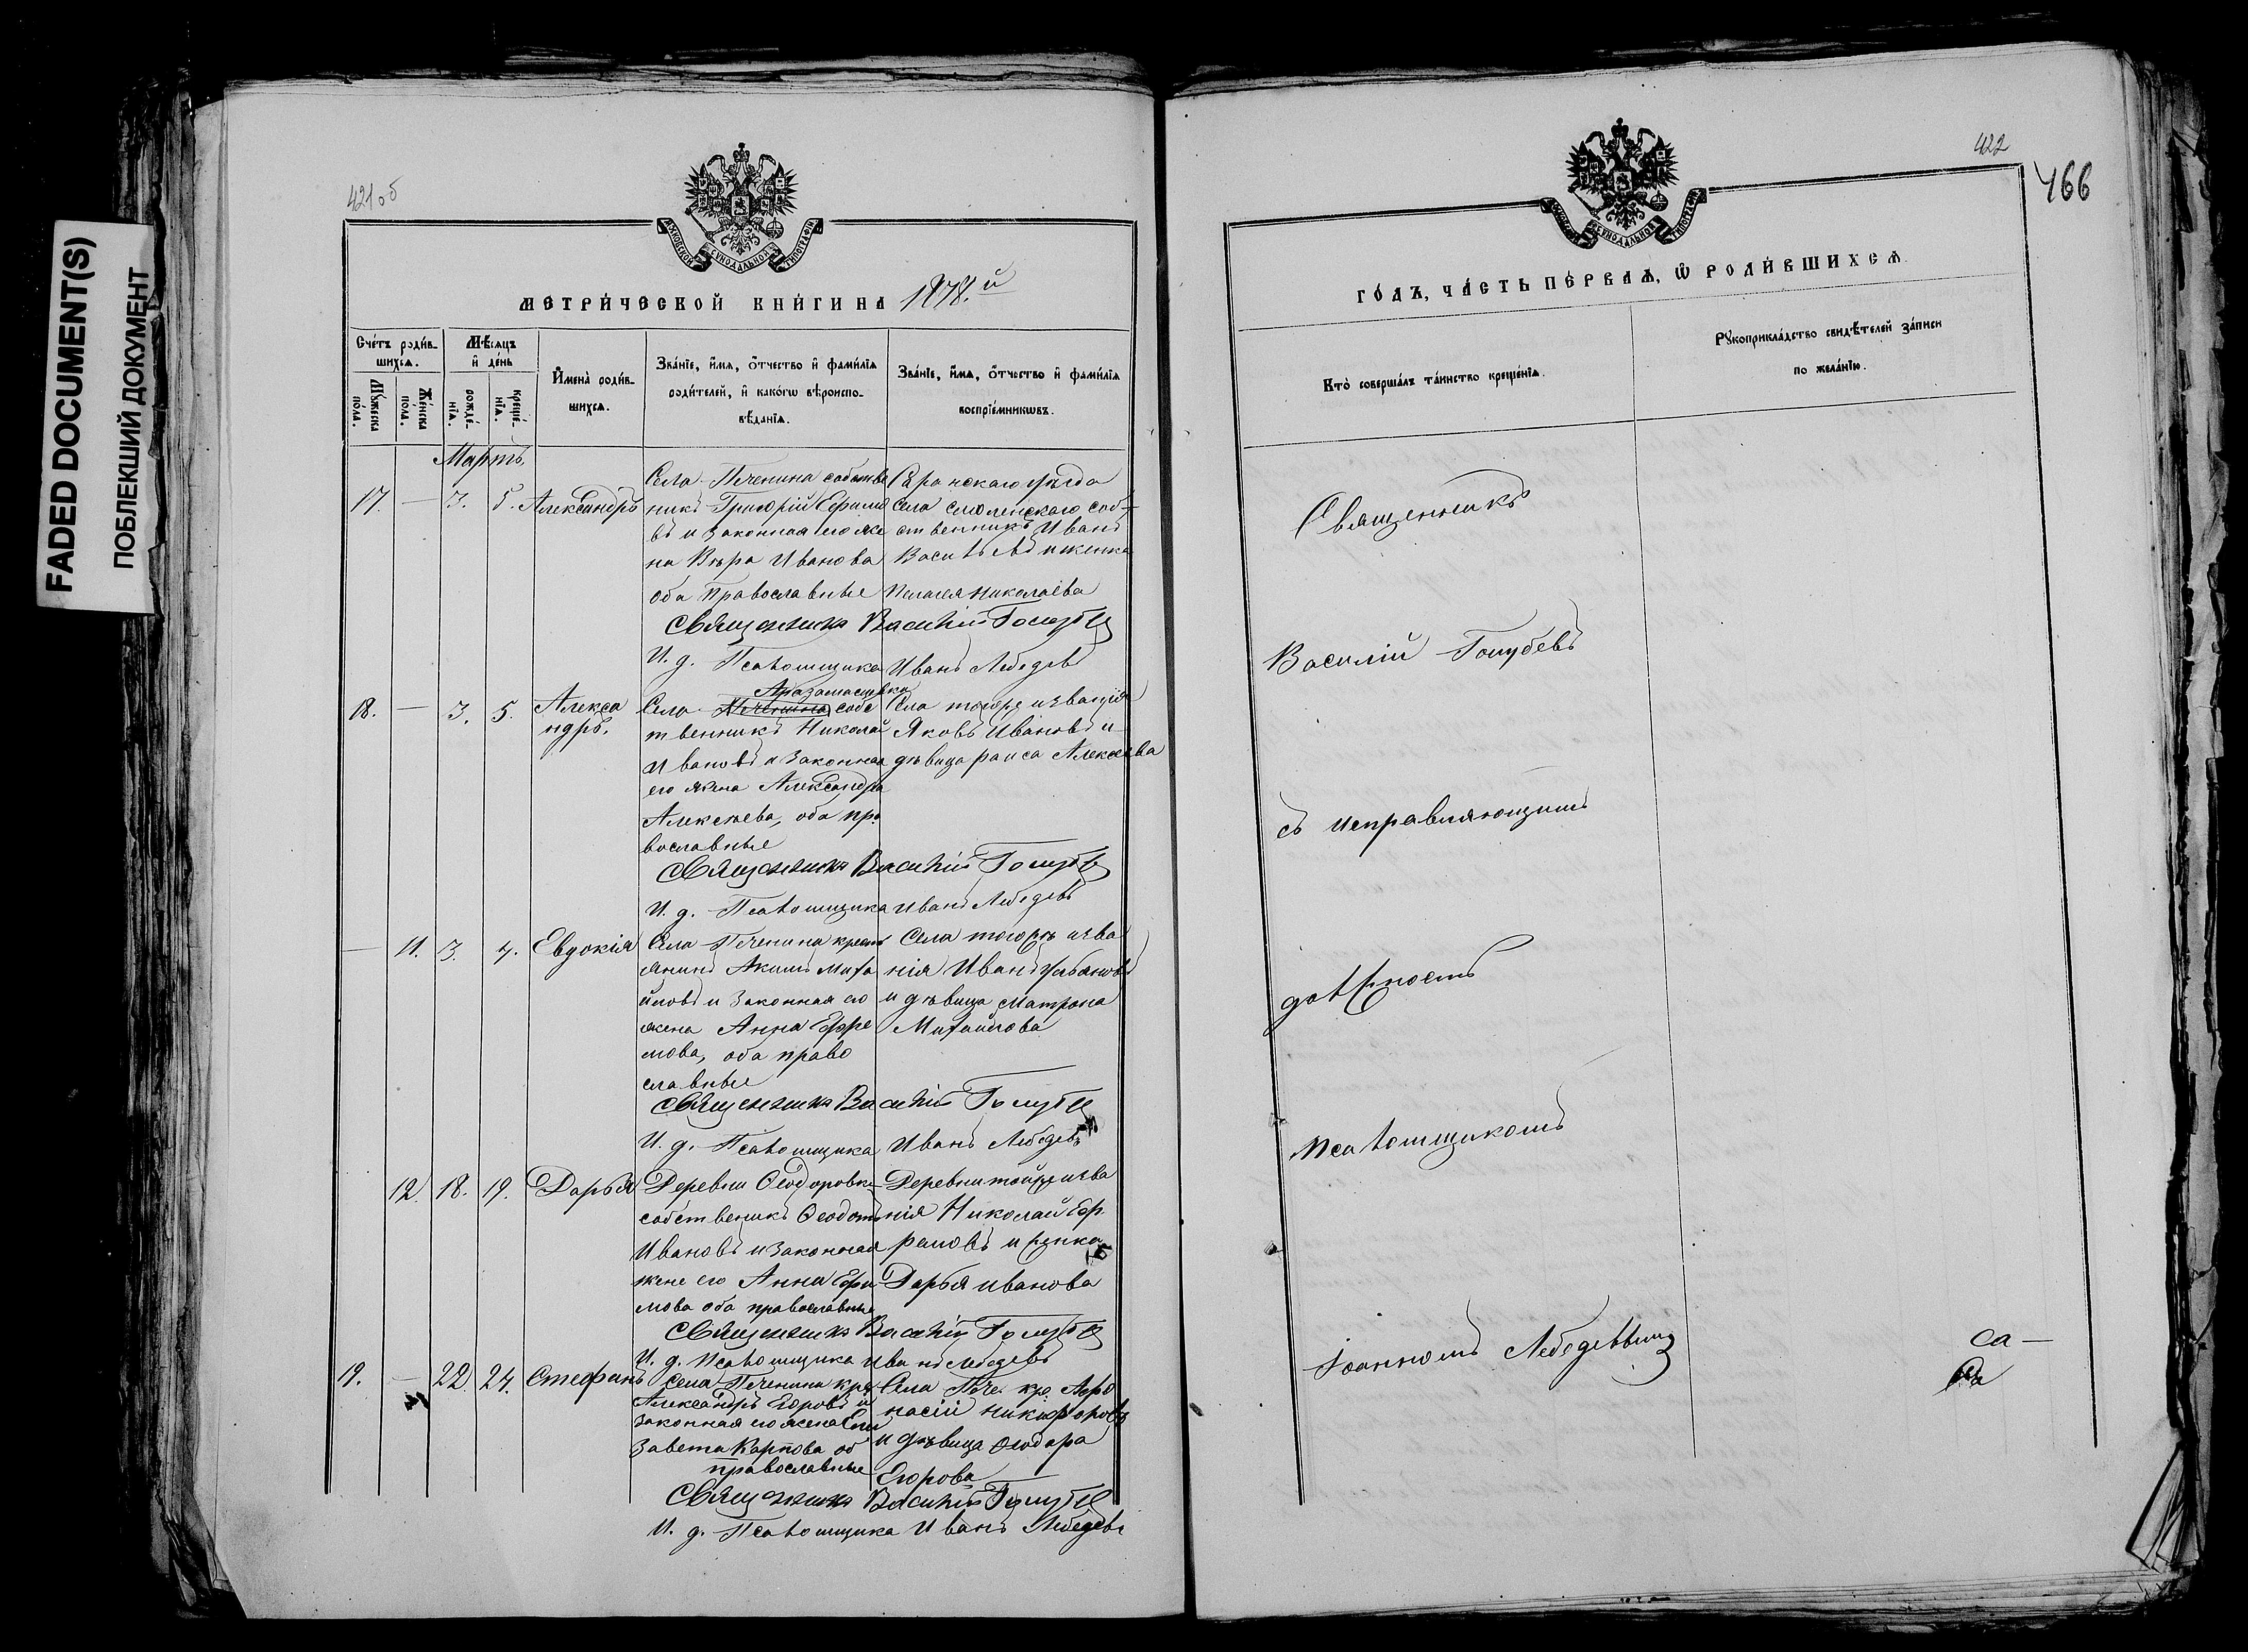 FADED DOCUMENT(S)
ПОБЛЕКШИЙ ДОКУМЕНТ
421об
МОСКОВСКОЙ СѴНОДАЛЬНОЙ ТИПОГРАФІИ
МЕТРИ́ЧЕСКОЙ КНИ́ГИ НА 1878.й
Сче́тъ роди́в-
шихся.
Мѣ́сяцъ
и҆ де́нь
Му́жеска
по́ла.
Же́нска
по́ла.
рожде́-
нїѧ.
креще́-
нїѧ.
И҆мена̀ роди́в-
шихся.
Зва́нїе, и҆́мѧ, ѻ҆́тчество и҆ фами́лїѧ
роди́телей, и҆ како́гѡ вѣроиспо-
вѣ́данїѧ.
Зва́нїе, и҆́мѧ, ѻ҆́тчество и҆ фами́лїѧ
воспрїе́мникѡвъ.
Мартъ
17. — 3. 5. Александръ
Села Печенина собстве
никъ Григорій Ефимо
въ и законная его же
на Вѣра Иванова
оба православные
Саранскаго уѣзда
села смоленскаго соб
ственникъ Иванъ
Васильевъ и женка
Пелагея Николаева
Священникъ Василій Голубевъ
И. д. Псаломщика Иванъ Лебедевъ
18. — 3. 5. Алекса
ндръ.
Арзамасцевка
Села Печенина собс
твенникъ Николай
Ивановъ и законная
его жена Александра
Алексѣева, оба пра
вославные
Села тогоже званія
Яковъ Ивановъ и
дѣвица раиса Алексѣева
Священникъ Василій Голубевъ
И. д. Псаломщика Иванъ Лебедевъ
— 11. 3. 4. Евдокія
Села Печенина кресть
янинъ Акимъ Миха
йловъ и законная его
жена Анна Ефре
мова, оба право
славные
Села тогоже зва
нія Иванъ Урбановъ
и дѣвица матрона
Михайлова
Священникъ Василій Голубевъ
И. д. Псаломщика Иванъ Лебедевъ
12. 18. 19. Дарья
Деревни Ѳеодоровки
собственикъ Ѳеодотъ
Ивановъ и законная
жене его Анна Ефи
мова оба православные
Деревни тойже зва
нія Николай Еф
рамовъ и женка
Дарья иванова
Священникъ Василій Голубевъ
И. д. Псаломщика Иванъ Лебедевъ
19. — 22. 24. Стефанъ
села Печенина кре
Александръ Егоровъ и
законная его жена Ели
завета Карпова об
православные
Села Пече. кре. Афо
насій никифоровъ
и дѣвица Ѳеодора
Егорова
Священникъ Василій Голубевъ
И. д. Псаломщика Иванъ Лебедевъ
422
466
МОСКОВСКОЙ СѴНОДАЛЬНОЙ ТИПОГРАФІИ
ГО́ДЪ, ЧА́СТЬ ПЕ́РВАЯ, Ѽ РОДИ́ВШИХСЯ
Кто̀ соверша́лъ та́инство креще́нїѧ.
Рꙋкоприкла́дство свидѣ́телей за́писи
по жела́нїю.
Священникъ
Василій Голубевъ
съ исправляющимъ
должность
псаломщикомъ
Іоанномъ Лебедевымъ
са—